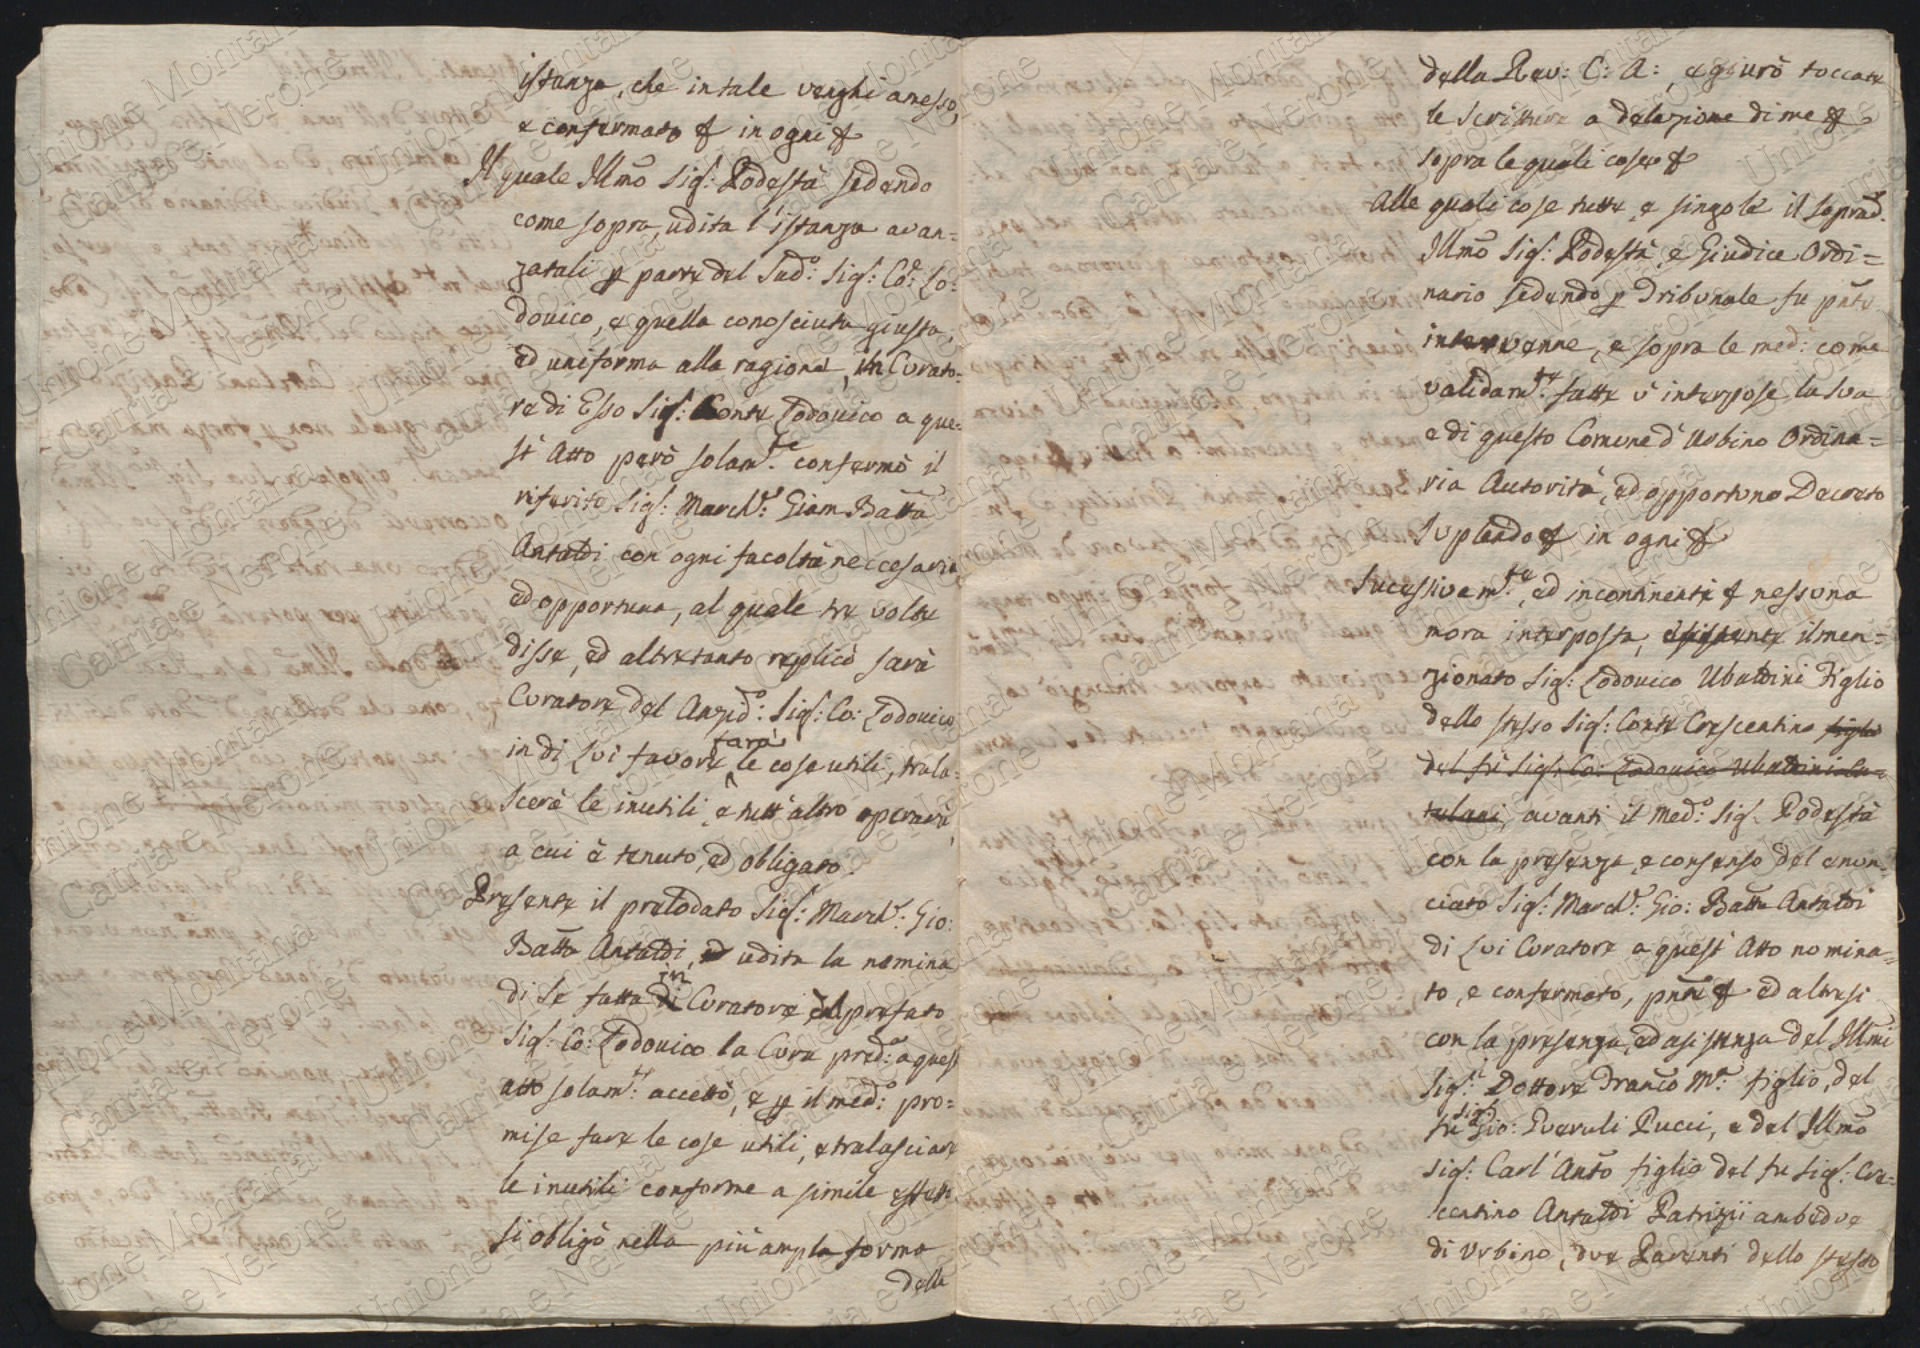 istanza, che in tale venghi anesso,
e confermato & in ogni &
Il quale Illmo Sig.r Podestà sedendo
come sopra, udita l'istanza avan=
zatali p parte del Sud.o Sig.r Co: Lo=
dovico, e quella conosciuta giusta,
ed uniforma alla ragione, in Curato=
re di Esso Sig.r Conte Lodovico a que=
st' Atto però solam.te confermò il
riferito Sig.r March.e Giam Batta
Antaldi con ogni facoltà neccesaria
ed opportuna, al quale tre volte
disse, ed altretanto replicò sarà
Curatore del Anzid.o Sig.r Co: Lodovico
in di Lui favore farà le cose utili, trala=
scerà le inutili, e tutt'altro operarà
a cui è tenuto, ed obligato.
Presente il prelodato Sig.r March.e Gio:
Batta Antaldi, ed udita la nomina
di Se fatta in Curatore del prefato
Sig.r Co: Lodovico la Cura pred.a a quest
atto solam.te accettò, e p il med.o pro=
mise fare le cose utili, e tralasciare
le inutili conforme a simile
si obligò nella più ampla forma
della
della Rev: C: A:, e giurò toccate
le Scritture a delazione di me &
sopra le quali cose &
Alle quali cose tutte, e singole il soprad.o
Illmo Sig.r Podestà, e Giudice Ordi=
nario sedendo p Tribunale fu pnte
intervenne, e sopra le med.e come
validam.te fatte v'interpose la sua
e di questo Comune d'Urbino Ordina=
ria Autorità, ed opportuno Decreto
Suplendo & in ogni &
Sucessivam.te, ed incontinenti & nessuna
mora interposta, esistente il men=
zionato Sig.r Lodovico Ubaldini Figlio
dello stesso Sig.r Conte Crescentino figlio
del fù Sig.r Co: Lodovico Ubaldini Ca=
tulani, avanti il Med.o Sig.r Podestà
con la presenza, e consenso del enun=
ciato Sig.r March.e Gio: Batta Antaldi
di Lui Curatore a quest' Atto nomina=
to, e confermato, pnte & ed altresi
con la presenza, ed asistenza del Illmi
Sig.ri Dottore Franco M.a figlio, del
fù Sig. Gio: Everuli Pucci, e del Illmo
Sig.r Carl' Anto figlio del fu Sig.r Cre=
centino Antaldi Patrizii ambedue
di Urbino, due Parenti dello stesso